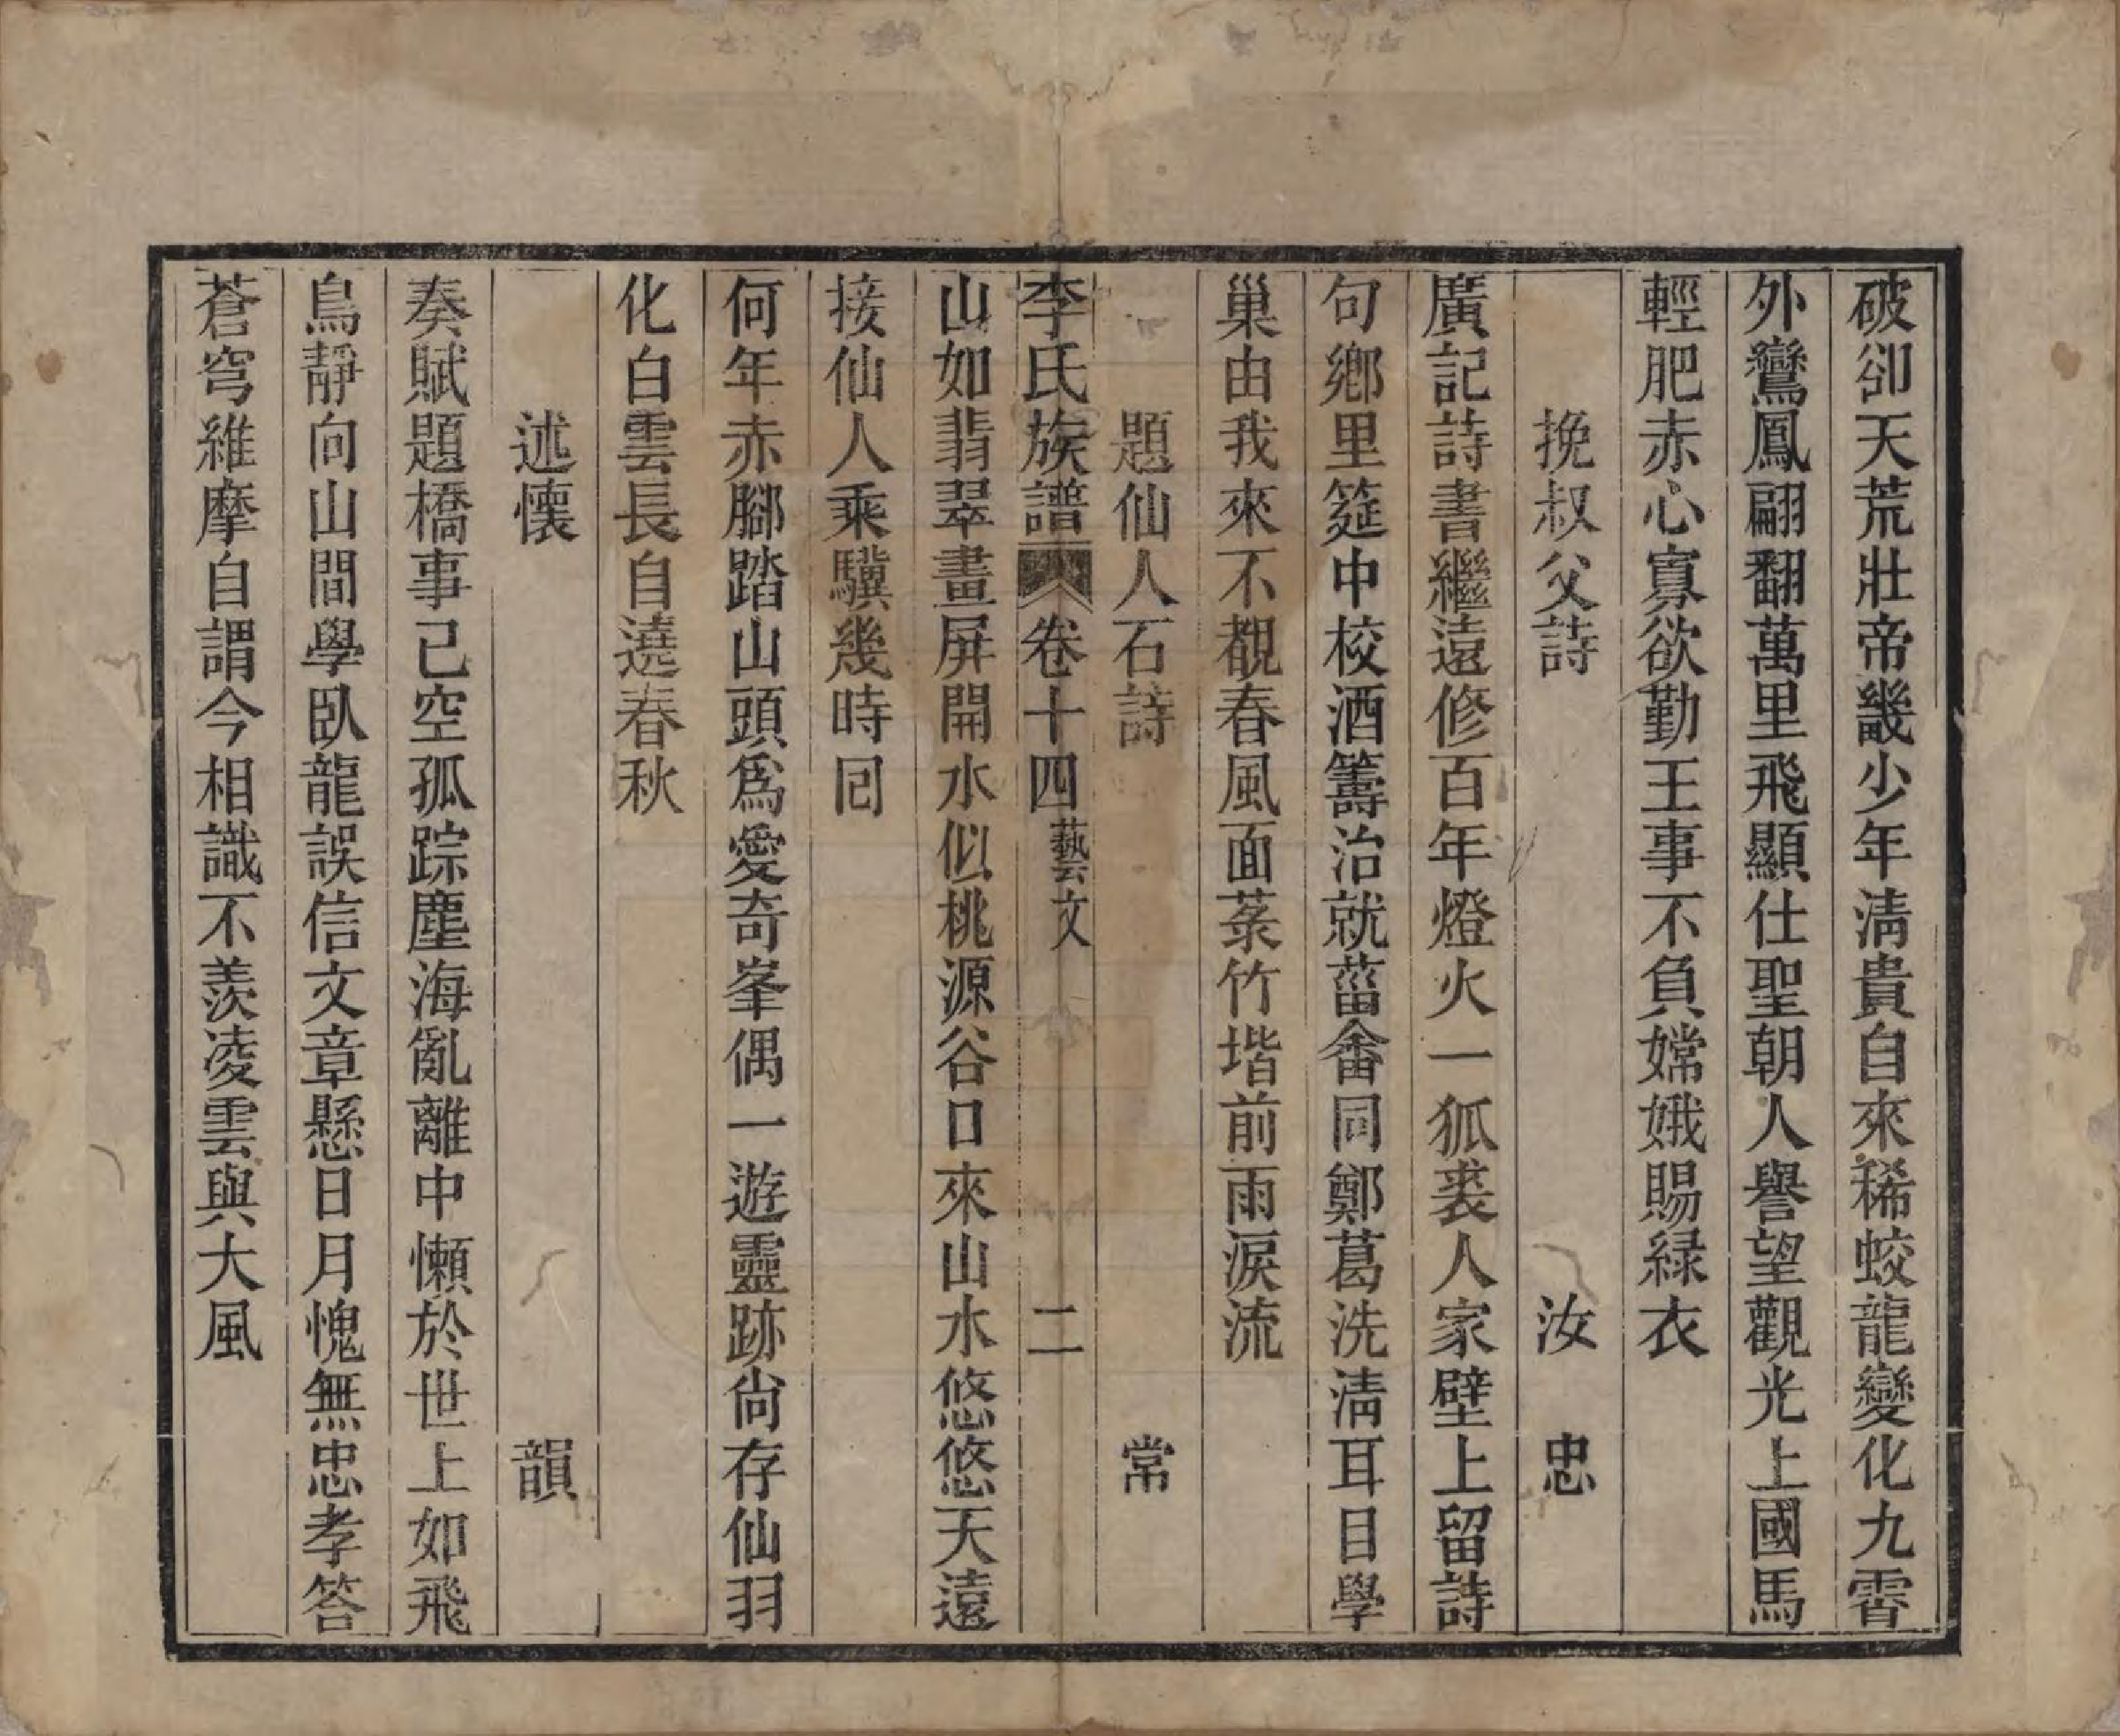 破卻天荒壯帝畿少年淸貴自來稀蛟龍變化九霄
外鸞鳳翩翻萬里飛顯仕聖朝人譽望觀光上國馬
輕肥赤心寡欲勤王事不負嫦娥賜緑衣
挽叔父詩 汝 忠
廣記詩書繼遠修百年燈火一狐裘人家壁上留詩
句鄉里筵中校酒籌治就菑畬同鄭葛洗淸耳目學
巢由我來不覩春風面菉竹堦前雨淚流
題仙人石詩 常
李氏族譜 卷十四 藝文 二
山如翡翠畫屏開水似桃源谷口來山水悠悠天遠
接仙人乘驥幾時囘
何年赤腳踏山頭爲愛奇峯偶一遊靈跡尙存仙羽
化白雲長自遶春秋
述懷 韻
奏賦題橋事已空孤踪塵海亂離中懶於世上如飛
鳥靜向山間學臥龍誤信文章懸日月愧無忠孝答
蒼穹維摩自謂今相識不羨凌雲與大風